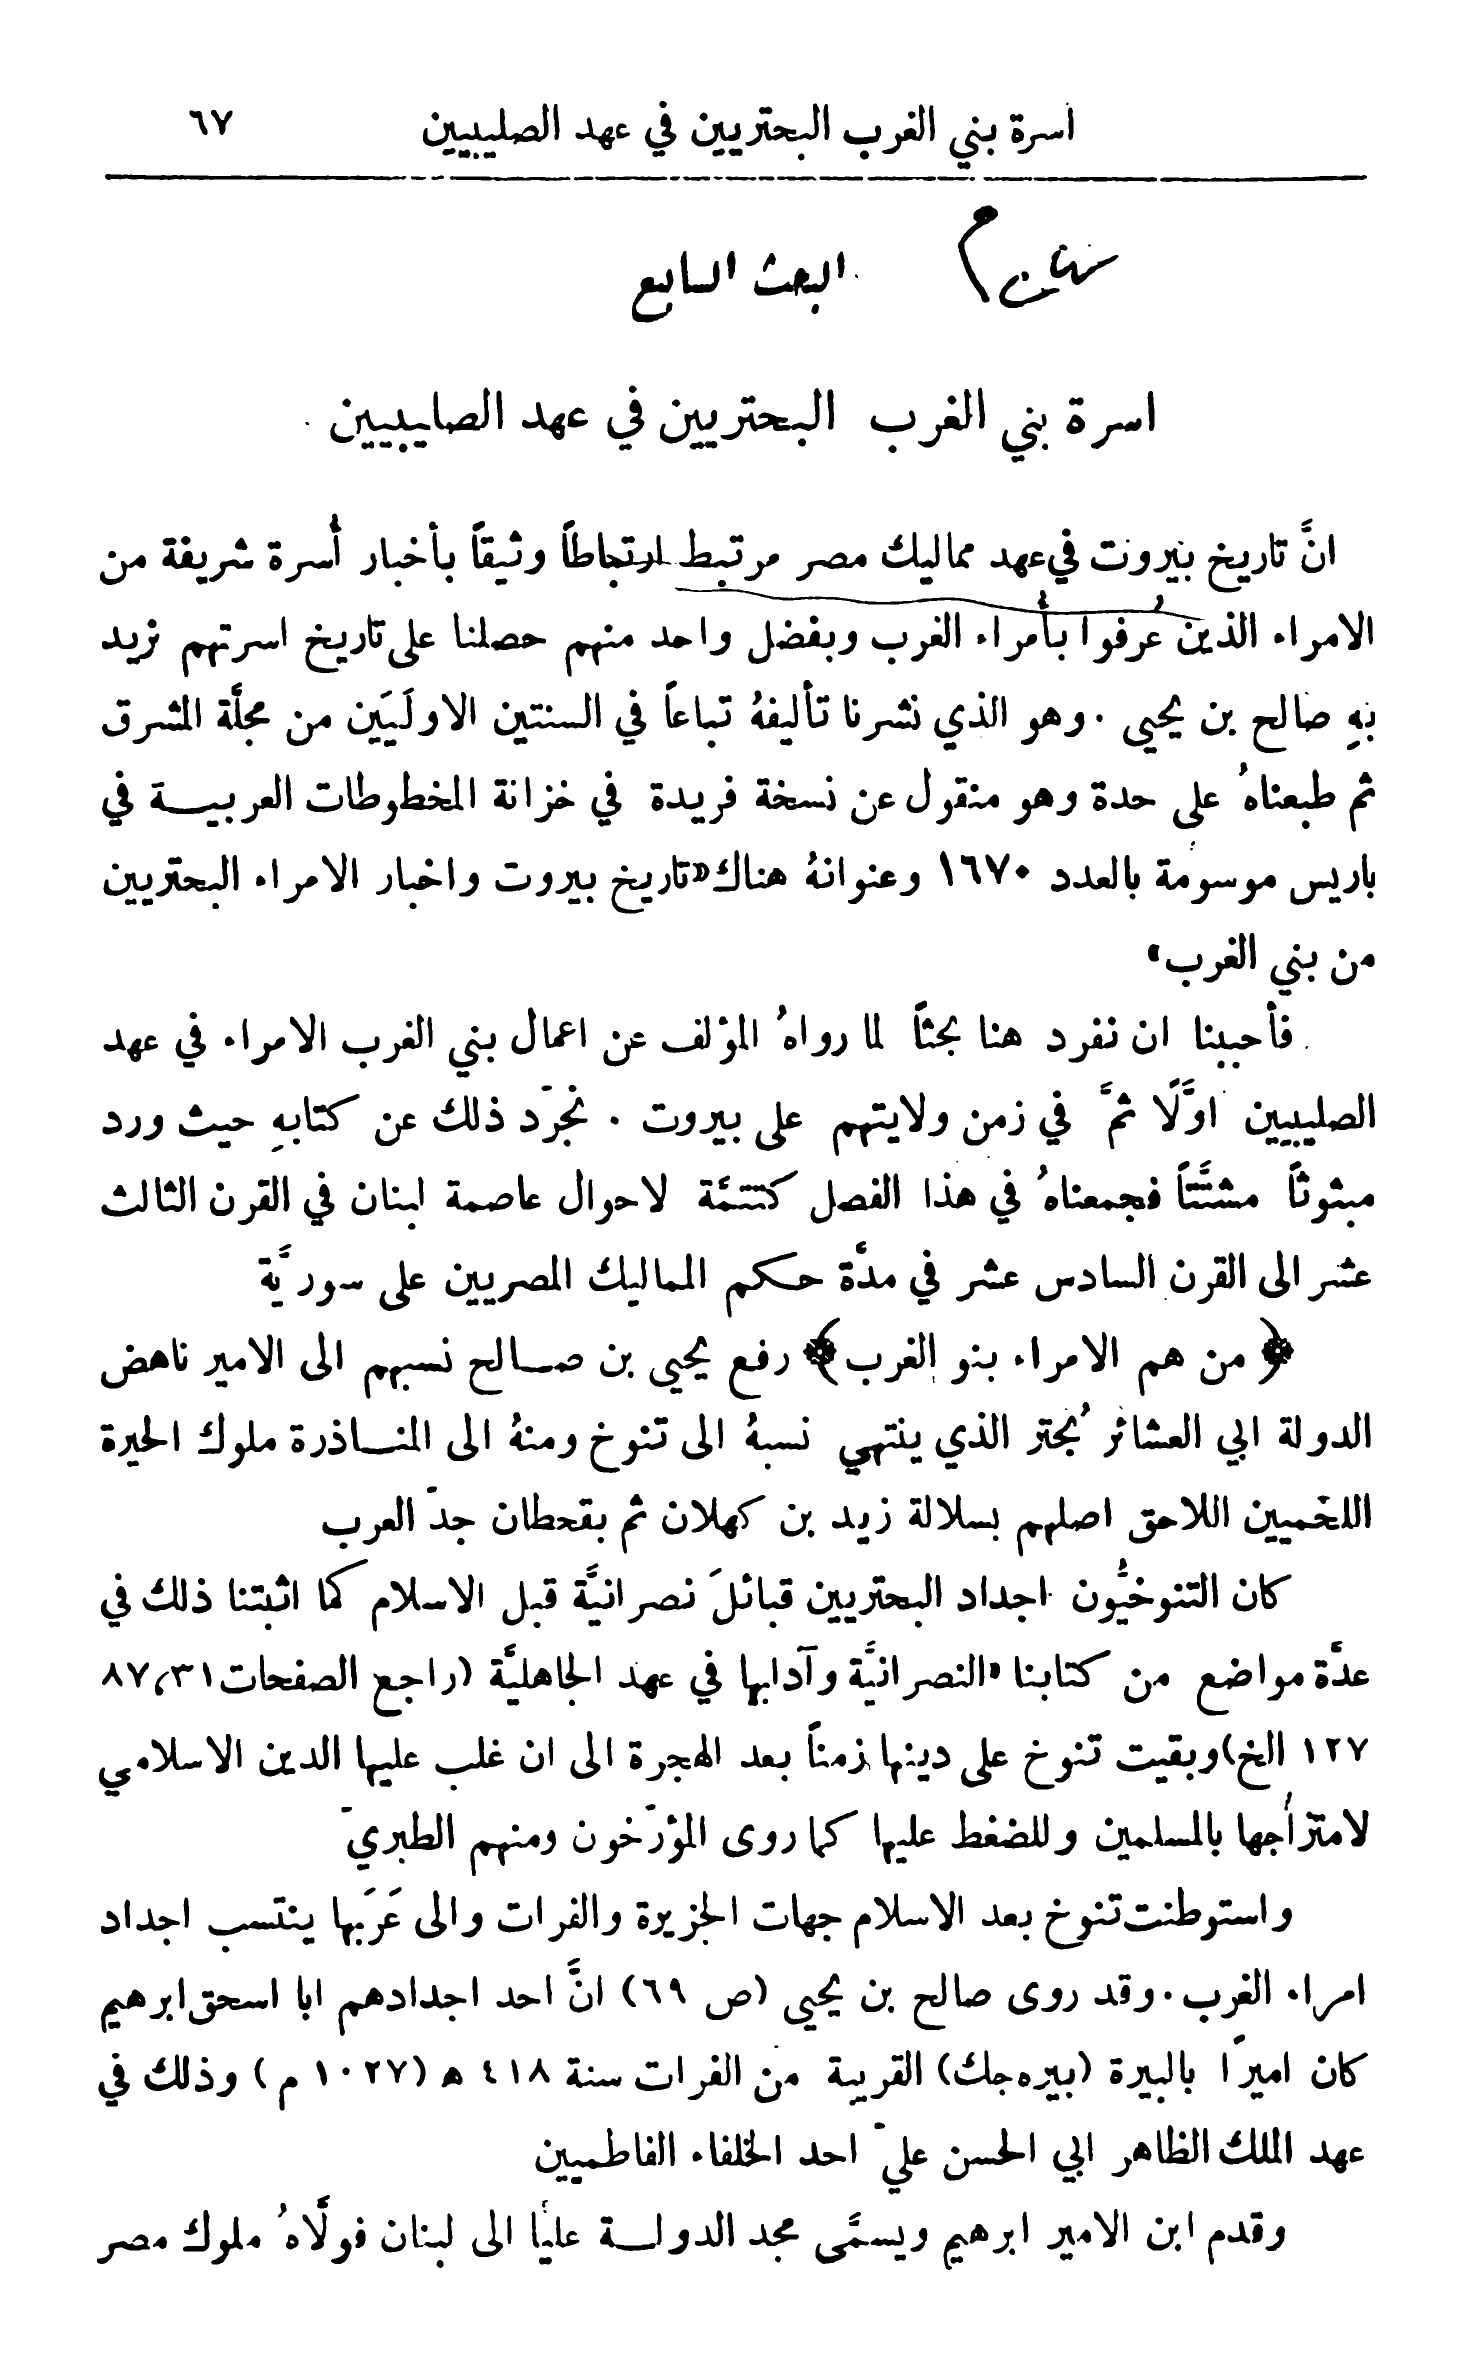 أسرة بني الغرب البحتريين في عهد الصليبيين ٦٧
البحث السابع
اسرة بني الغرب البحتريين في عهد الصليبيين
انَّ تاريخ بيروت في عهد مماليك مصر مرتبط ارتباطاً وثيقاً بأخبار أُسرة شريفة من
الامراء الذين عُرفوا بأُمراء الغرب وبفضل واحد منهم حصلنا على تاريخ اسرتهم نريد
بهِ صالح بن يحيى . وهو الذي نشرنا تأليفهُ تباعاً في السنتين الاوليَيَن من مجلَّة المشرق
ثم طبعناهُ على حدة وهو منقول عن نسخة فريدة في خزانة المخطوطات العربيــة في
باريس موسومة بالعدد ١٦٧٠ وعنوانهُ هناك «تاريخ بيروت واخبار الامراء البحتريين
من بني الغرب»
فأحببنا ان نفرد هنا بحثاً لما رواهُ المؤلف عن اعمال بني الغرب الامراء في عهد
الصليبيين اوَّلًا ثمَّ في زمن ولايتهم على بيروت . نجرّد ذلك عن كتابهِ حيث ورد
مبثوثاً مشتَّتاً فجمعناهُ في هذا الفصل كتتمَّة لاحوال عاصمة لبنان في القرن الثالث
عشر الى القرن السادس عشر في مدَّة حكم المماليك المصريين على سوريَّة
﴿ من هم الامراء بنو الغرب ﴾ رفع يحيى بن صــالح نسبهم الى الامير ناهض
الدولة ابي العشائر بُحتر الذي ينتهي نسبهُ الى تنوخ ومنهُ الى المنــاذرة ملوك الحيرة
اللخميين اللاحق اصلهم بسلالة زيد بن كهلان ثم بقحطان جدّ العرب
كان التنوخيُّون اجداد البحتريين قبائلَ نصرانيَّة قبل الاسلام كما اثبتنا ذلك في
عدَّة مواضع من كتابنا «النصرانيَّة وآدابها في عهد الجاهليَّة (راجع الصفحات ٣١، ٨٧
١٢٧ الخ) وبقيت تنوخ على دينها زمناً بعد الهجرة الى ان غلب عليها الدين الاسلامي
لامتزاجها بالمسلمين وللضغط عليها كما روى المؤرّخون ومنهم الطبريّ
واستوطنت تنوخ بعد الاسلام جهات الجزيرة والفرات والى عَرَبها ينتسب اجداد
امراء الغرب . وقد روى صالح بن يحيى (ص ٦٩) انَّ احد اجدادهم ابا اسحق ابرهيم
كان اميرًا بالبيرة (بيره جك) القريبة من الفرات سنة ٤١٨ ه (١٠٢٧ م) وذلك في
عهد الملك الظاهر ابي الحسن عليّ احد الخلفاء الفاطميين
وقدم ابن الامير ابرهيم ويسمَّى مجد الدولــة عليًّا الى لبنان فولَّاهُ ملوك مصر